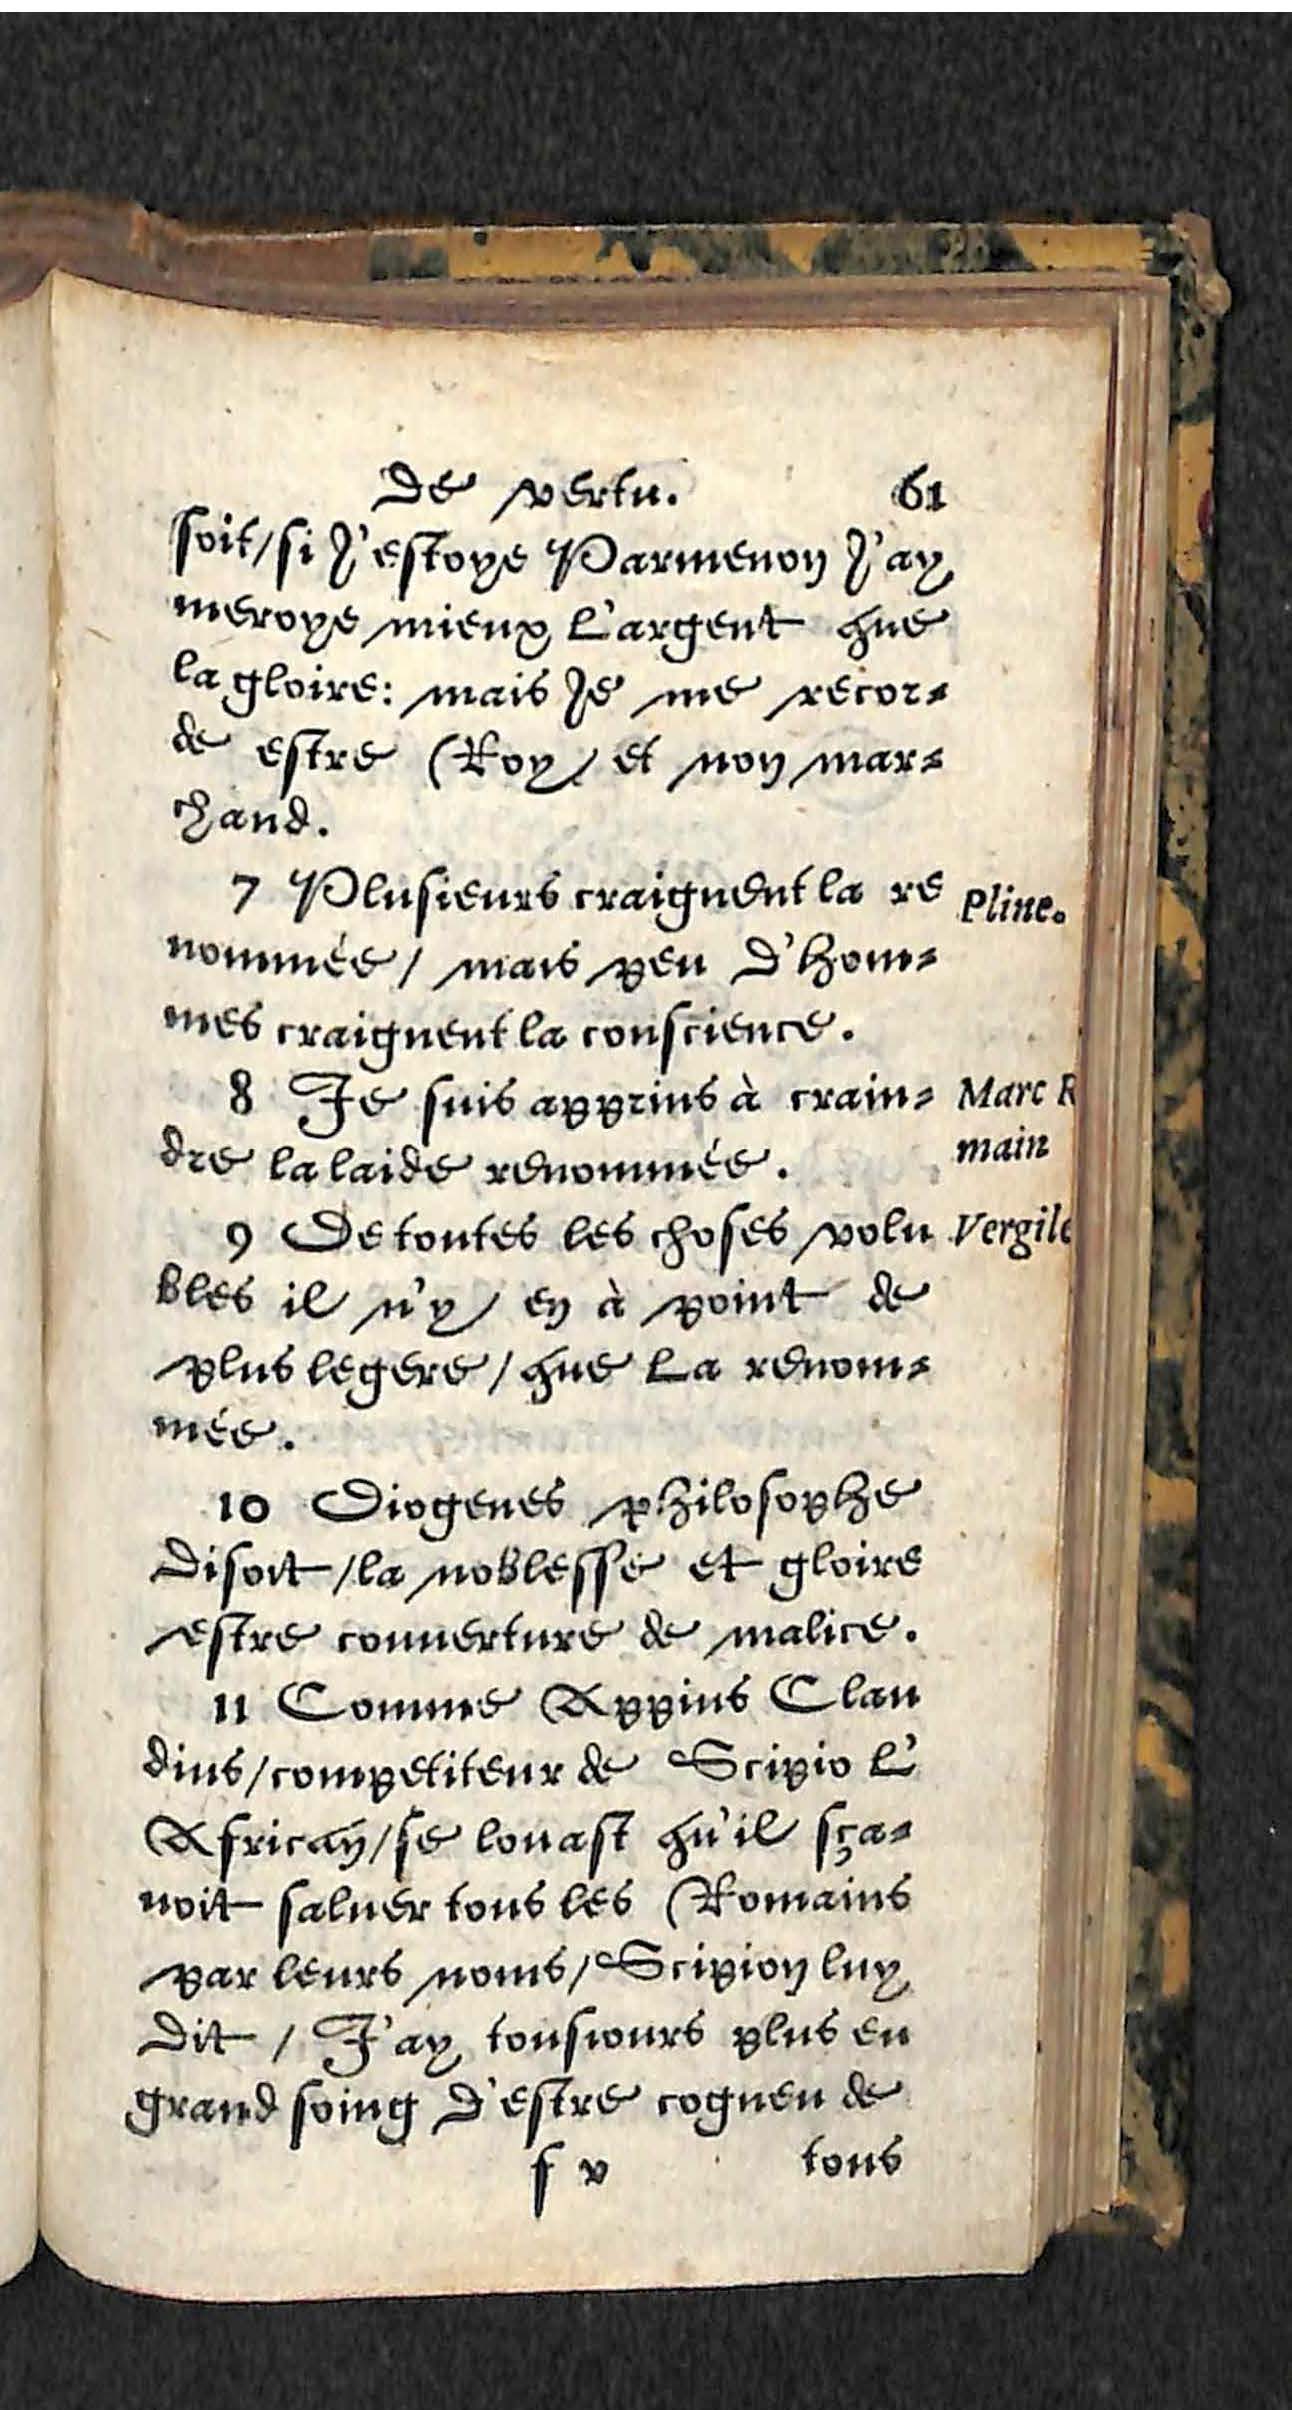 De vertu. 61
soit/ si j'estoye Parmenon j'ay
meroye mieux l'argent que
la gloire: mais je me recor-
de estre Roy/ et non mar-
chand.
7 Plusieurs craignent la re Pline.
nommée/ mais peu d'hom-
mes craignent la conscience.
8 Je suis apprins à crain- Marc R
dre la laide renommée. main
9 De toutes les choses volu Vergile
bles il n'y en à point de
plus legere/ que la renom-
mée.
10 Diogenes philosophe
disoit/ la noblesse et gloire
estre couuerture de malice.
11 Comme Appius Clau
dius/ competiteur de Scipio l'
African/ se louast qu'il sça-
uoit saluer tous les Romains
par leurs noms/ Scipion luy
dit/ J'ay tousiours plus eu
grand soing d'estre cogneu de
f v tous